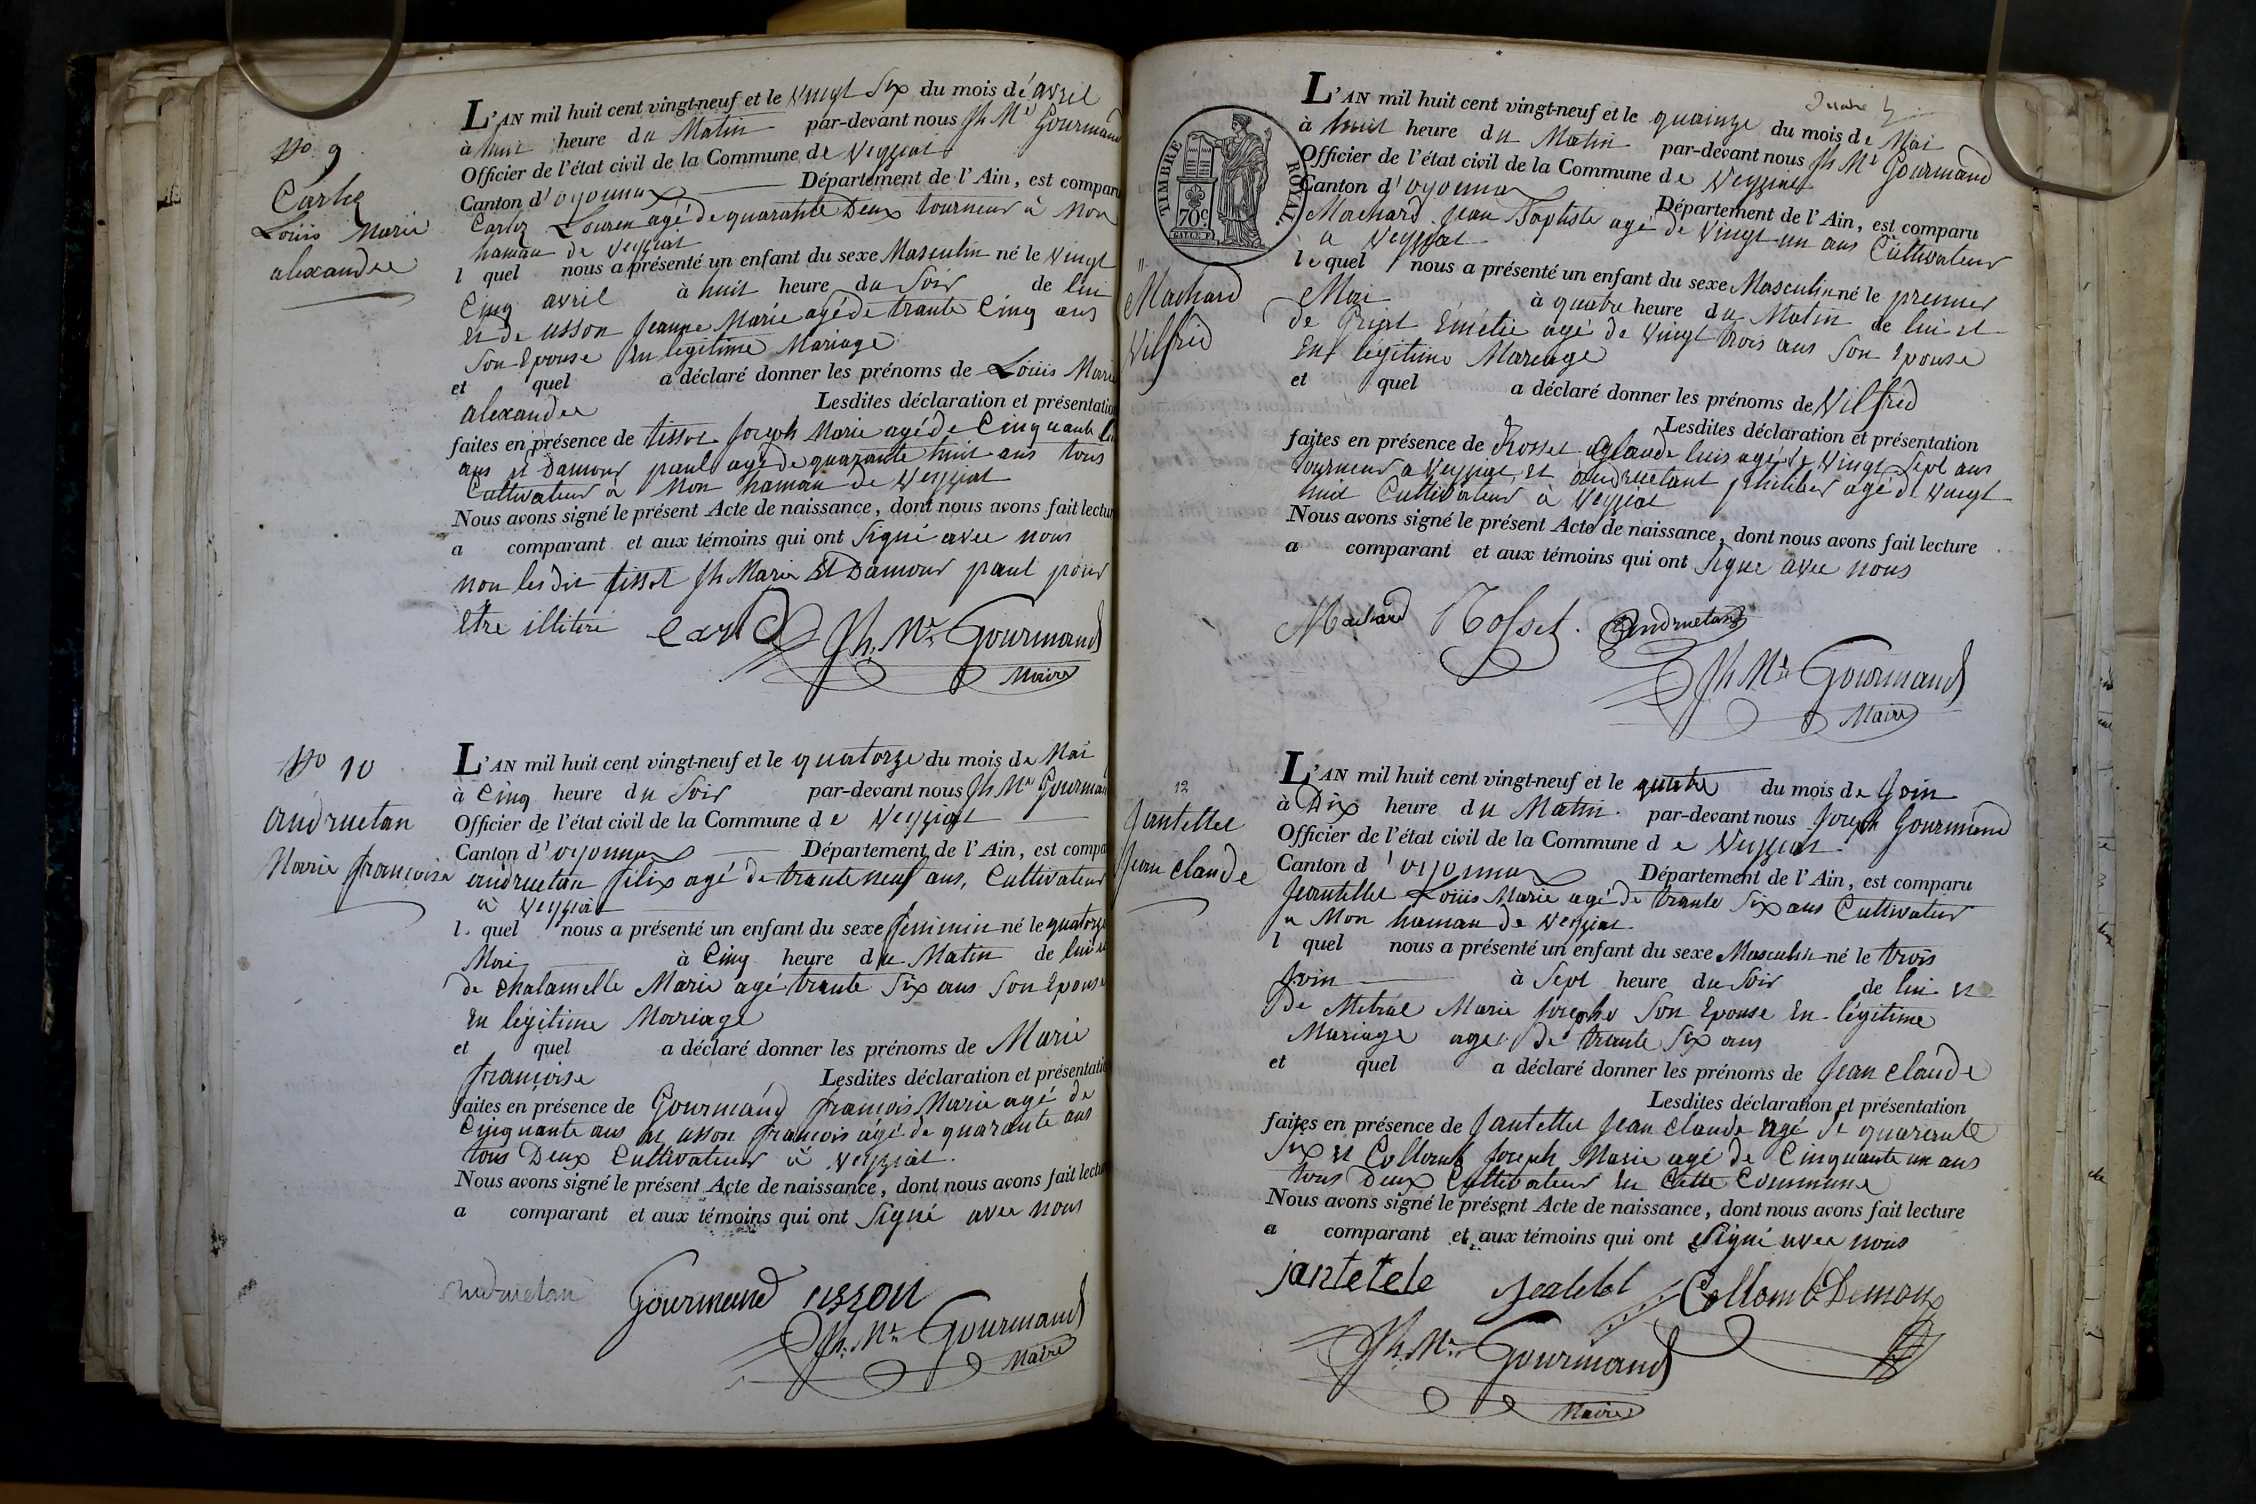 No 9
Carlez
Loüis Marie
alexandre
L'AN mil huit cent vingt-neuf et le vingt Six du mois de avril
à huit heure du Matin par-devant nous Jh Me Gourmand
Officier de l'état civil de la Commune de veyziat
Canton d'oyonnax Département de l'Ain, est comparu
Carlez Louren agé de quarante Deux tourneur à Mon
hamau de veyziat
l quel nous a présenté un enfant du sexe Masculin né le vingt
Cinq avril à huit heure du Soir de lui
Et de usson Jeanne Marie agé de trante Cinq ans
Son Epouse En legitime Mariage
et quel a déclaré donner les prénoms de Loüis Marie
alexandre Lesdites déclaration et présentation
faites en présence de tissot Joseph Marie agé de Cinquante
ans et Damour paul agé de quarante huit ans tous
Cultivateur à Mon hamau de Veyziat
Nous avons signé le présent Acte de naissance, dont nous avons fait lecture
a comparant et aux témoins qui ont Signé avec nous
non les dit tissot Jh Marie Et Damour paul pour
Etre illitiré
Jh. Me Gourmand
Maire
No 10
andruetan
Marie françoise
L'AN mil huit cent vingt-neuf et le quatorze du mois de Mai
à Cinq heure du Soir par-devant nous Jh Me Gourmand
Officier de l'état civil de la Commune de Veyziat
Canton d'oyonnax Département de l'Ain, est compa
andruetan félix agé de trante neuf ans, Cultivateur
à veyziat
l quel nous a présenté un enfant du sexe féminin né le quatorze
Mai à Cinq heure du Matin de lui et
de chalamelle Marie agé trante Six ans Son Epouse
En legitime Mariage
et quel a déclaré donner les prénoms de Marie
françoise Lesdites déclaration et présentation
faites en présence de Gourmand françois Marie agé de
Cinquante ans et usson françois agé de quarante ans
tous Deux Cultivateur à veyziat.
Nous avons signé le présent Acte de naissance, dont nous avons fait lecture
a comparant et aux témoins qui ont Signé avec nous
andruetan Gourmand usson
Jh. Me Gourmand
Maire
TIMBRE ROYAL
70c
11
Machard
Vilfrid
L'AN mil huit cent vingt-neuf et le quainze du mois de Mai
à huit heure du Matin par-devant nous Jh Me Gourmand
Officier de l'état civil de la Commune de Veyziat
Canton d'oyonnax Département de l'Ain, est comparu
Machard Jean Baptiste agé de Vingt un ans Cultivateur
a Veyziat
le quel nous a présenté un enfant du sexe Masculin né le premier
Mai à quatre heure du Matin de lui et
de Emélie agé de Vingt trois ans Son Epouse
En légitime Mariage
et quel a déclaré donner les prénoms de Vilfrid
Lesdites déclaration et présentation
faites en présence de Rosset Claude luis agé de Vingt Sept ans
tourneur a Veyziat, et andruetant philiber agé de vingt
huit Cultivateur à Veyziat
Nous avons signé le présent Acte de naissance, dont nous avons fait lecture
a comparant et aux témoins qui ont Signé avec nous
Machard Rosset. andruetan
Jh Me Gourmand
Maire
12
Jantellet
Jean claude
L'AN mil huit cent vingt-neuf et le quatre du mois de Join
à Dix heure du Matin. par-devant nous Joseph Gourmand
Officier de l'état civil de la Commune de Veyziat.
Canton d'oyonnax Département de l'Ain, est comparu
Jeantellet Loüis Marie agé de trante Six ans Cultivateur
a Mon hamau de Veyziat
l quel nous a présenté un enfant du sexe Masculin né le trois
Join à Sept heure du Soir de lui et
De Métral Marie Josephe Son Epouse En légitime
Mariage agé De trante Six ans
et quel a déclaré donner les prénoms de Jean claude
Lesdites déclaration et présentation
faites en présence de Jantellet Jean claude agé de quarante
Six et Collomb Joseph Marie agé de Cinquante un ans
tous Deux Cultivateur En Cette Commune
Nous avons signé le présent Acte de naissance, dont nous avons fait lecture
a comparant et aux témoins qui ont Signé avec nous
jantetele Collomb Demoux
Jh. Me Gourmand
Maire